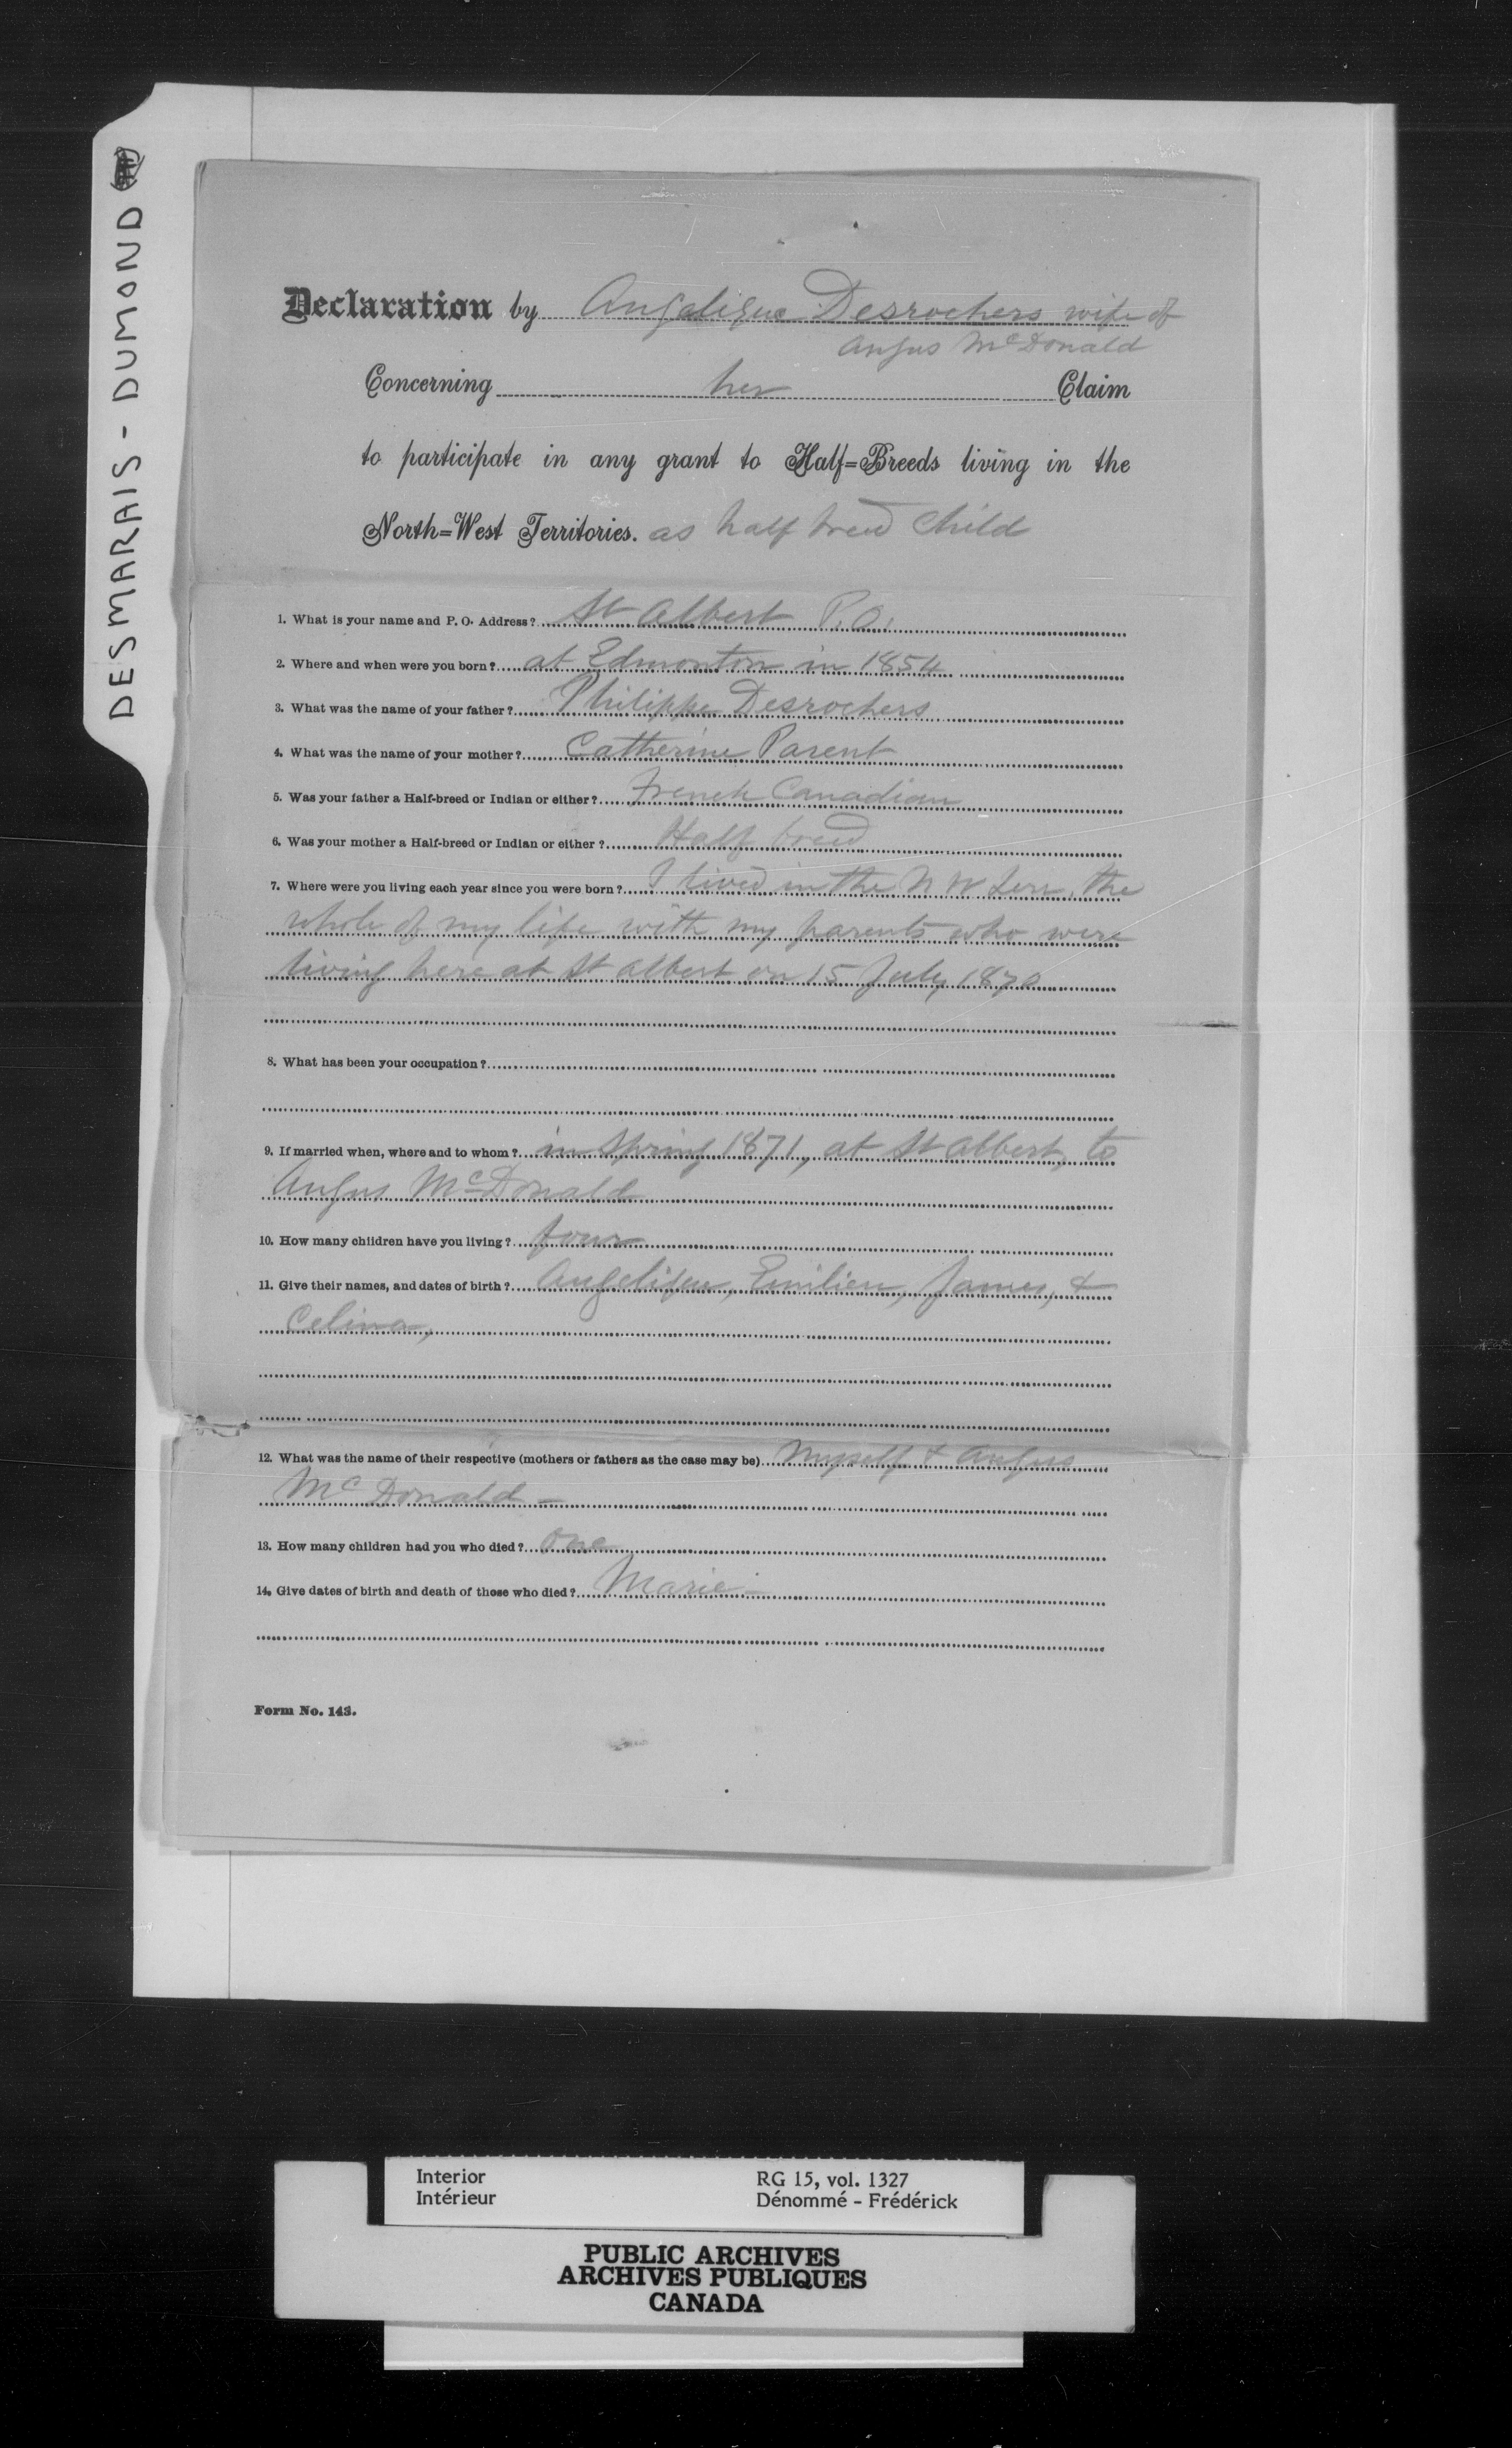 DESMARAIS - DUMOND
Declaration by Angelique Desrochers wife of
Angus McDonald
Concerning her Claim
to participate in any grant to Half=Breeds living in the
North=West Territories. as half breed Child
1. What is your name and P. O. Address? St Albert P.O.
2. Where and when were you born? at Edmonton in 1854
3. What was the name of your father? Philippe Desrochers
4. What was the name of your mother? Catherine Parent
5. Was your father a Half-breed or Indian or either? French Canadian
6. Was your mother a Half-breed or Indian or either? Half breed
7. Where were you living each year since you were born? I lived in the N W Terr, the
whole of my life with my parents who were
living here at St Albert on 15 July 1870
8. What has been your occupation?
9. If married when, where and to whom? in Spring 1871, at St Albert, to
Angus McDonald
10. How many children have you living? four
11. Give their names, and dates of birth? Angelique, Emilien, James, &
Celina,
12. What was the name of their respective (mothers or fathers as the case may be) Myself & Angus
McDonald -
13. How many children had you who died? One
14. Give dates of birth and death of those who died? Marie -
Form No. 143.
Interior RG 15, vol. 1327
Intérieur Dénommé - Frédérick
PUBLIC ARCHIVES
ARCHIVES PUBLIQUES
CANADA